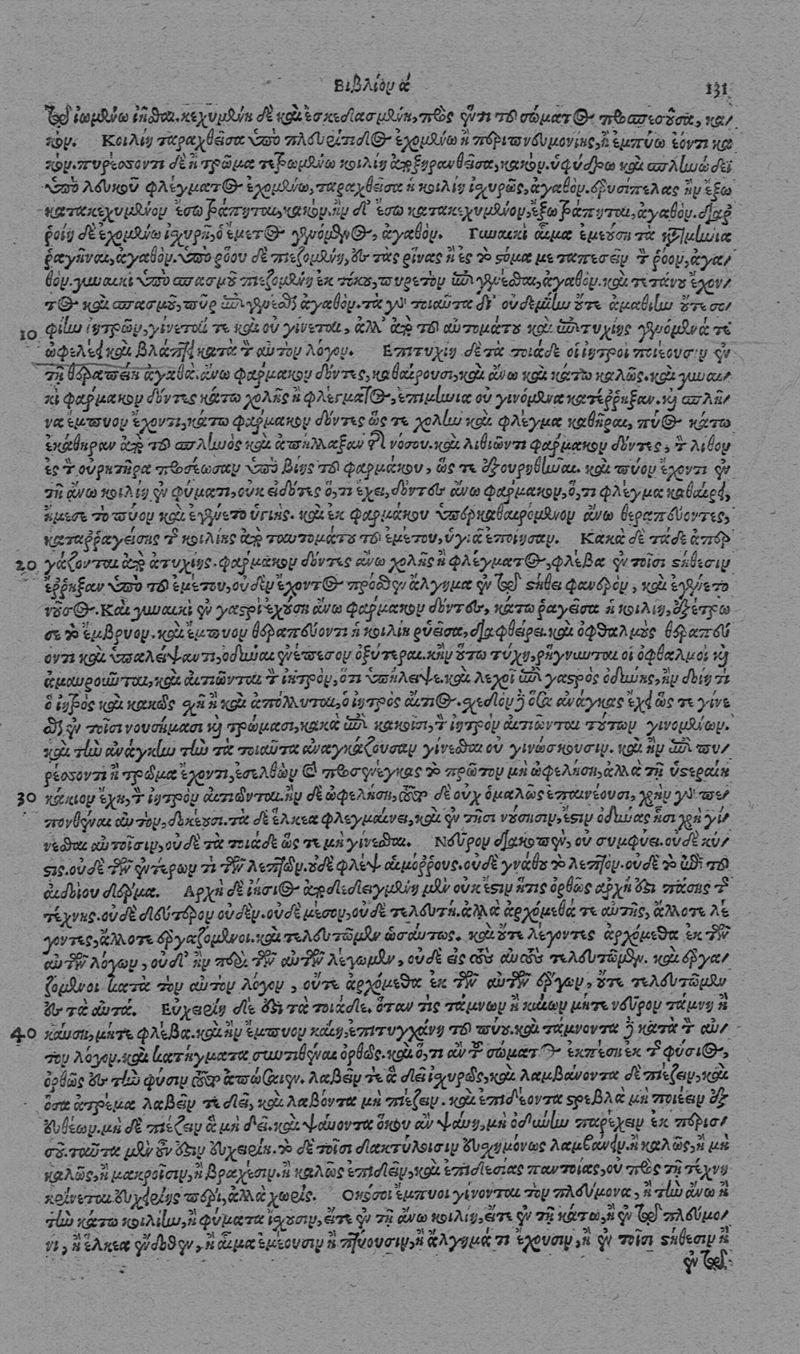 Βιβλίον ά 131
τῷ ἰωμένῳ ἰῆσθαι. κεχυμένη δὲ καὶ ἐσκεδιασμένη, πρὸς ἕν τι τοῦ σώματος προσπεσοῦσα, κα/
κόν. Κοιλίη ταραχθεῖσα ὑπὸ πλευρίτιδος ἐχομένῳ ἢ περιπνευμονίης, ἢ ἐμπύῳ ἐόντι κα
κόν. πυρέσσοντι δὲ ἢ τρῶμα τετρωμένῳ κοιλίη ἀποξηρανθεῖσα, κακόν. ὑφύδρῳ καὶ σπληνώδει
ὑπὸ λευκοῦ φλέγματος ἐχομένῳ, ταραχθεῖσα ἡ κοιλίη ἰσχυρῶς, ἀγαθόν. ἐρυσίπελας ἢν ἔξω
κατακεχυμένον ἔσω τράπηται, κακόν. ἢν δ' ἔσω κατακεχυμένον, ἔξω τράπηται, ἀγαθόν. διαρ
ροίῃ δὲ ἐχομένῳ ἰσχυρῇ, ὁ ἔμετος γενόμενος, ἀγαθόν. Γυναικὶ αἷμα ἐμεύσῃ τὰ καταμήνια
ῥαγῆναι, ἀγαθόν. ὑπὸ ῥόου δὲ πιεζομένῃ, ἐς τὰς ῥῖνας ἢ ἐς τὸ στόμα μεταπεσεῖν τὸν ῥόον, ἀγα/
θόν. γυναικὶ ὑπὸ σπασμοῦ πιεζομένῃ ἐκ τόκου, πυρετὸν ἐπιγενέσθαι, ἀγαθόν. καὶ τετάνου ἔχον/
τος καὶ σπασμοῦ, πῦρ ἐπιγενέσθαι ἀγαθόν. τὰ γὰρ τοιαῦτα δι' οὐδεμίην οὔτε ἀμαθίην οὔτε σο/
10 φίην ἰητρῶν, γίνεταί τε καὶ οὐ γίνεται, ἀλλ' ἀπὸ τοῦ αὐτομάτου καὶ ἐπιτυχίης γενόμενά τε
ὠφελέει καὶ βλάπτει κατὰ τὸν αὐτὸν λόγον. Ἐπιτυχίῃ δὲ τὰ τοιάδε οἱ ἰητροὶ ποιέουσιν ἐν
τῇ θεραπείῃ ἀγαθά. ἄνω φάρμακον δόντες, καθαίρουσι, καὶ ἄνω καὶ κάτω καλῶς. καὶ γυναι/
κὶ φάρμακον δόντες κάτω χολῆς ἢ φλέγματος, ἐπιμήνια οὐ γινόμενα κατέρρηξαν. καὶ σπλῆ/
να ἔμπυον ἔχοντι, κάτω φάρμακον δόντες ὥς τε χολὴν καὶ φλέγμα καθῆραι, πύος κάτω
ἐκάθηραν ἀπὸ τοῦ σπληνὸς καὶ ἀπήλλαξαν τῆς νόσου. καὶ λιθιῶντι φάρμακον δόντες, τὸν λίθον
ἐς τὸν οὐρητῆρα προέωσαν ὑπὸ βίης τοῦ φαρμάκου, ὥς τε ἐξουρηθῆναι. καὶ πύον ἔχοντι ἐν
τῇ ἄνω κοιλίῃ ἐν φύματι, οὐκ εἰδότες ὅ, τι ἔχει, δόντες ἄνω φάρμακον, ὅ, τι φλέγμα καθαίρει,
ἤμεσε τὸ πύον καὶ ἐγένετο ὑγιής. καὶ ἐκ φαρμάκου ὑπερκαθαιρόμενον ἄνω θεραπεύοντες,
καταρραγείσης τῆς κοιλίης ἀπὸ ταυτομάτου τοῦ ἐμέτου, ὑγιᾶ ἐποίησαν. Κακὰ δὲ τάδε ἀπερ
20 γάζονται ἀπὸ ἀτυχίης. φάρμακον δόντες ἄνω χολῆς ἢ φλέγματος, φλέβα ἐν τοῖσι στήθεσιν
ἔρρηξαν ὑπὸ τοῦ ἐμέτου, οὐδὲν ἔχοντος πρόσθεν ἄλγημα ἐν τῷ στήθει φανερὸν, καὶ ἐγένετο
νοῦσος. Καὶ γυναικὶ ἐν γαστρὶ ἐχούσῃ ἄνω φάρμακον δόντες, κάτω ῥαγεῖσα ἡ κοιλίη, ἐξέτρω
σε τὸ ἔμβρυον. καὶ ἔμπυον θεραπεύοντι ἡ κοιλίη ῥυεῖσα, διαφθείρει. καὶ ὀφθαλμοὺς θεραπεύ
οντι καὶ ὑπαλείψαντι, ὀδύναι ἐνέπεσον ὀξύτεραι. κἢν οὕτω τύχῃ, ῥήγνυνται οἱ ὀφθαλμοὶ καὶ
ἀμαυροῦνται, καὶ αἰτιῶνται τὸν ἰητρὸν, ὅτι ὑπήλειψε. καὶ λεχοῖ ἐπὶ γαστρὸς ὀδύνης, ἢν δοίη τι
ὁ ἰητρὸς καὶ κακῶς σχῇ ἢ καὶ ἀπόλλυται, ὁ ἰητρὸς αἴτιος. σχεδὸν δὲ ὅσα ἀνάγκας ἔχει ὥς τε γίνε
σθαι ἐν τοῖσι νουσήμασι καὶ τρώμασι, κακὰ ἐπὶ κακοῖσι, τὸν ἰητρὸν αἰτιῶνται τούτων γινομένων.
καὶ τὴν ἀνάγκην τὴν τὰ τοιαῦτα ἀναγκάζουσαν γίνεσθαι οὐ γινώσκουσιν. καὶ ἢν ἐπὶ πυ/
ρέσσοντι ἢ τρῶμα ἔχοντι, ἐσελθὼν καὶ προσενέγκας τὸ πρῶτον μὴ ὠφελήσῃ, ἀλλὰ τῇ ὑστεραίῃ
30 κάκιον ἔχῃ, τὸν ἰητρὸν αἰτιῶνται. ἢν δὲ ὠφελήσῃ, τοῦτο δὲ οὐχ ὁμαλῶς ἐπαινέουσι, χρῆν γὰρ πε/
πονθέναι αὐτὸν, δοκέουσι. τὰ δὲ ἕλκεα φλεγμαίνει, καὶ ἐν τῇσι νούσῃσιν, ἔστιν ὀδύνας ᾗσι χρὴ γί/
νεσθαι αὐτοῖσιν, οὐδὲ τὰ τοιάδε ὥς τε μὴ γίνεσθαι. Νεῦρον διακοπὲν, οὐ συμφύει. οὐδὲ κύ/
στις. οὐδὲ τῶν ἐντέρων τι τῶν λεπτῶν. οὐδὲ φλὲψ αἱμόρρους. οὐδὲ γνάθου τὸ λεπτόν. οὐδὲ τὸ ἐπὶ τοῦ
αἰδοίου δέρμα. Ἀρχὴ δὲ ἰήσιος ἀποδεδειγμένη μὲν οὐκ ἔστιν ἥτις ὀρθῶς ἀρχή ἐστι πάσης τῆς
τέχνης. οὐδὲ δεύτερον οὐδέν. οὐδὲ μέσον, οὐδὲ τελευτή. ἀλλὰ ἀρχόμεθά τε αὐτῆς, ἄλλοτε λέ
γοντες, ἄλλοτε ἐργαζόμενοι. καὶ τελευτῶμεν ὡσαύτως. καὶ οὔτε λέγοντες ἀρχόμεθα ἐκ τῶν
αὐτῶν λόγων, οὐδ' ἢν περὶ τῶν αὐτῶν λέγωμεν, οὐδὲ εἰς τοὺς αὐτοὺς τελευτῶμεν. καὶ ἐργα/
ζόμενοι κατὰ τὸν αὐτὸν λόγον, οὔτε ἀρχόμεθα ἐκ τῶν αὐτῶν ἔργων, οὔτε τελευτῶμεν
ἐς τὰ αὐτά. Εὐχειρίη δὲ ἐστὶ τὰ τοιάδε. ὅταν τὶς τάμνων ἢ καίων μήτε νεῦρον τάμνῃ ἢ
40 καύσῃ, μήτε φλέβα. καὶ ἢν ἔμπυον καίῃ, ἐπιτυγχάνῃ τοῦ πύου. καὶ τάμνοντα δὲ κατὰ τὸν αὐ/
τὸν λόγον. καὶ κατήγματα συντιθέναι ὀρθῶς. καὶ ὅ, τι ἂν τοῦ σώματος ἐκπέσῃ ἐκ τῆς φύσιος,
ὀρθῶς ἐς τὴν φύσιν τοῦτο ἀπῶσαι. λαβεῖν τε ἃ δεῖ ἰσχυρῶς, καὶ λαμβάνοντα δὲ πιέζειν, καὶ
ὅσα ἀτρέμα λαβεῖν τε δεῖ, καὶ λαβόντα μὴ πιέζειν. καὶ ἐπιδέοντα στρεβλὰ μὴ ποιέειν ἐξ
εὐθέων. μὴ δὲ πιέζειν ἃ μὴ δεῖ. καὶ ψαύοντα ὅκου ἂν ψαύῃ, μὴ ὀδύνην παρέχειν ἐκ περισ/
σοῦ. ταῦτα μὲν οὖν ἐστιν εὐχειρίη. τὸ δὲ τοῖσι δακτύλοισιν εὐσχημόνως λαμβάνειν. ἢ καλῶς, ἢ μὴ
καλῶς, ἢ μακροῖσιν, ἢ βραχέσιν. ἢ καλῶς ἐπιδεῖν, καὶ ἐπιδέσιας παντοίας, οὐ πρὸς τῇ τέχνῃ
κρίνεται εὐχειρίης πέρι, ἀλλὰ χωρίς. Ὁκόσοι ἔμπυοι γίνονται τὸν πλεύμονα, ἢ τὴν ἄνω ἢ
τὴν κάτω κοιλίην, ἢ φύματα ἴσχουσιν, εἴτε ἐν τῇ ἄνω κοιλίῃ, εἴτε ἐν τῇ κάτω, ἢ ἐν τῷ πλεύμο/
νι, ἢ ἕλκεα ἔνδοθεν, ἢ αἷμα ἐμέουσιν ἢ πτύουσιν, ἢ ἄλγημά τι ἔχουσιν, ἢ ἐν τοῖσι στήθεσιν ἢ
ἐν τῷ